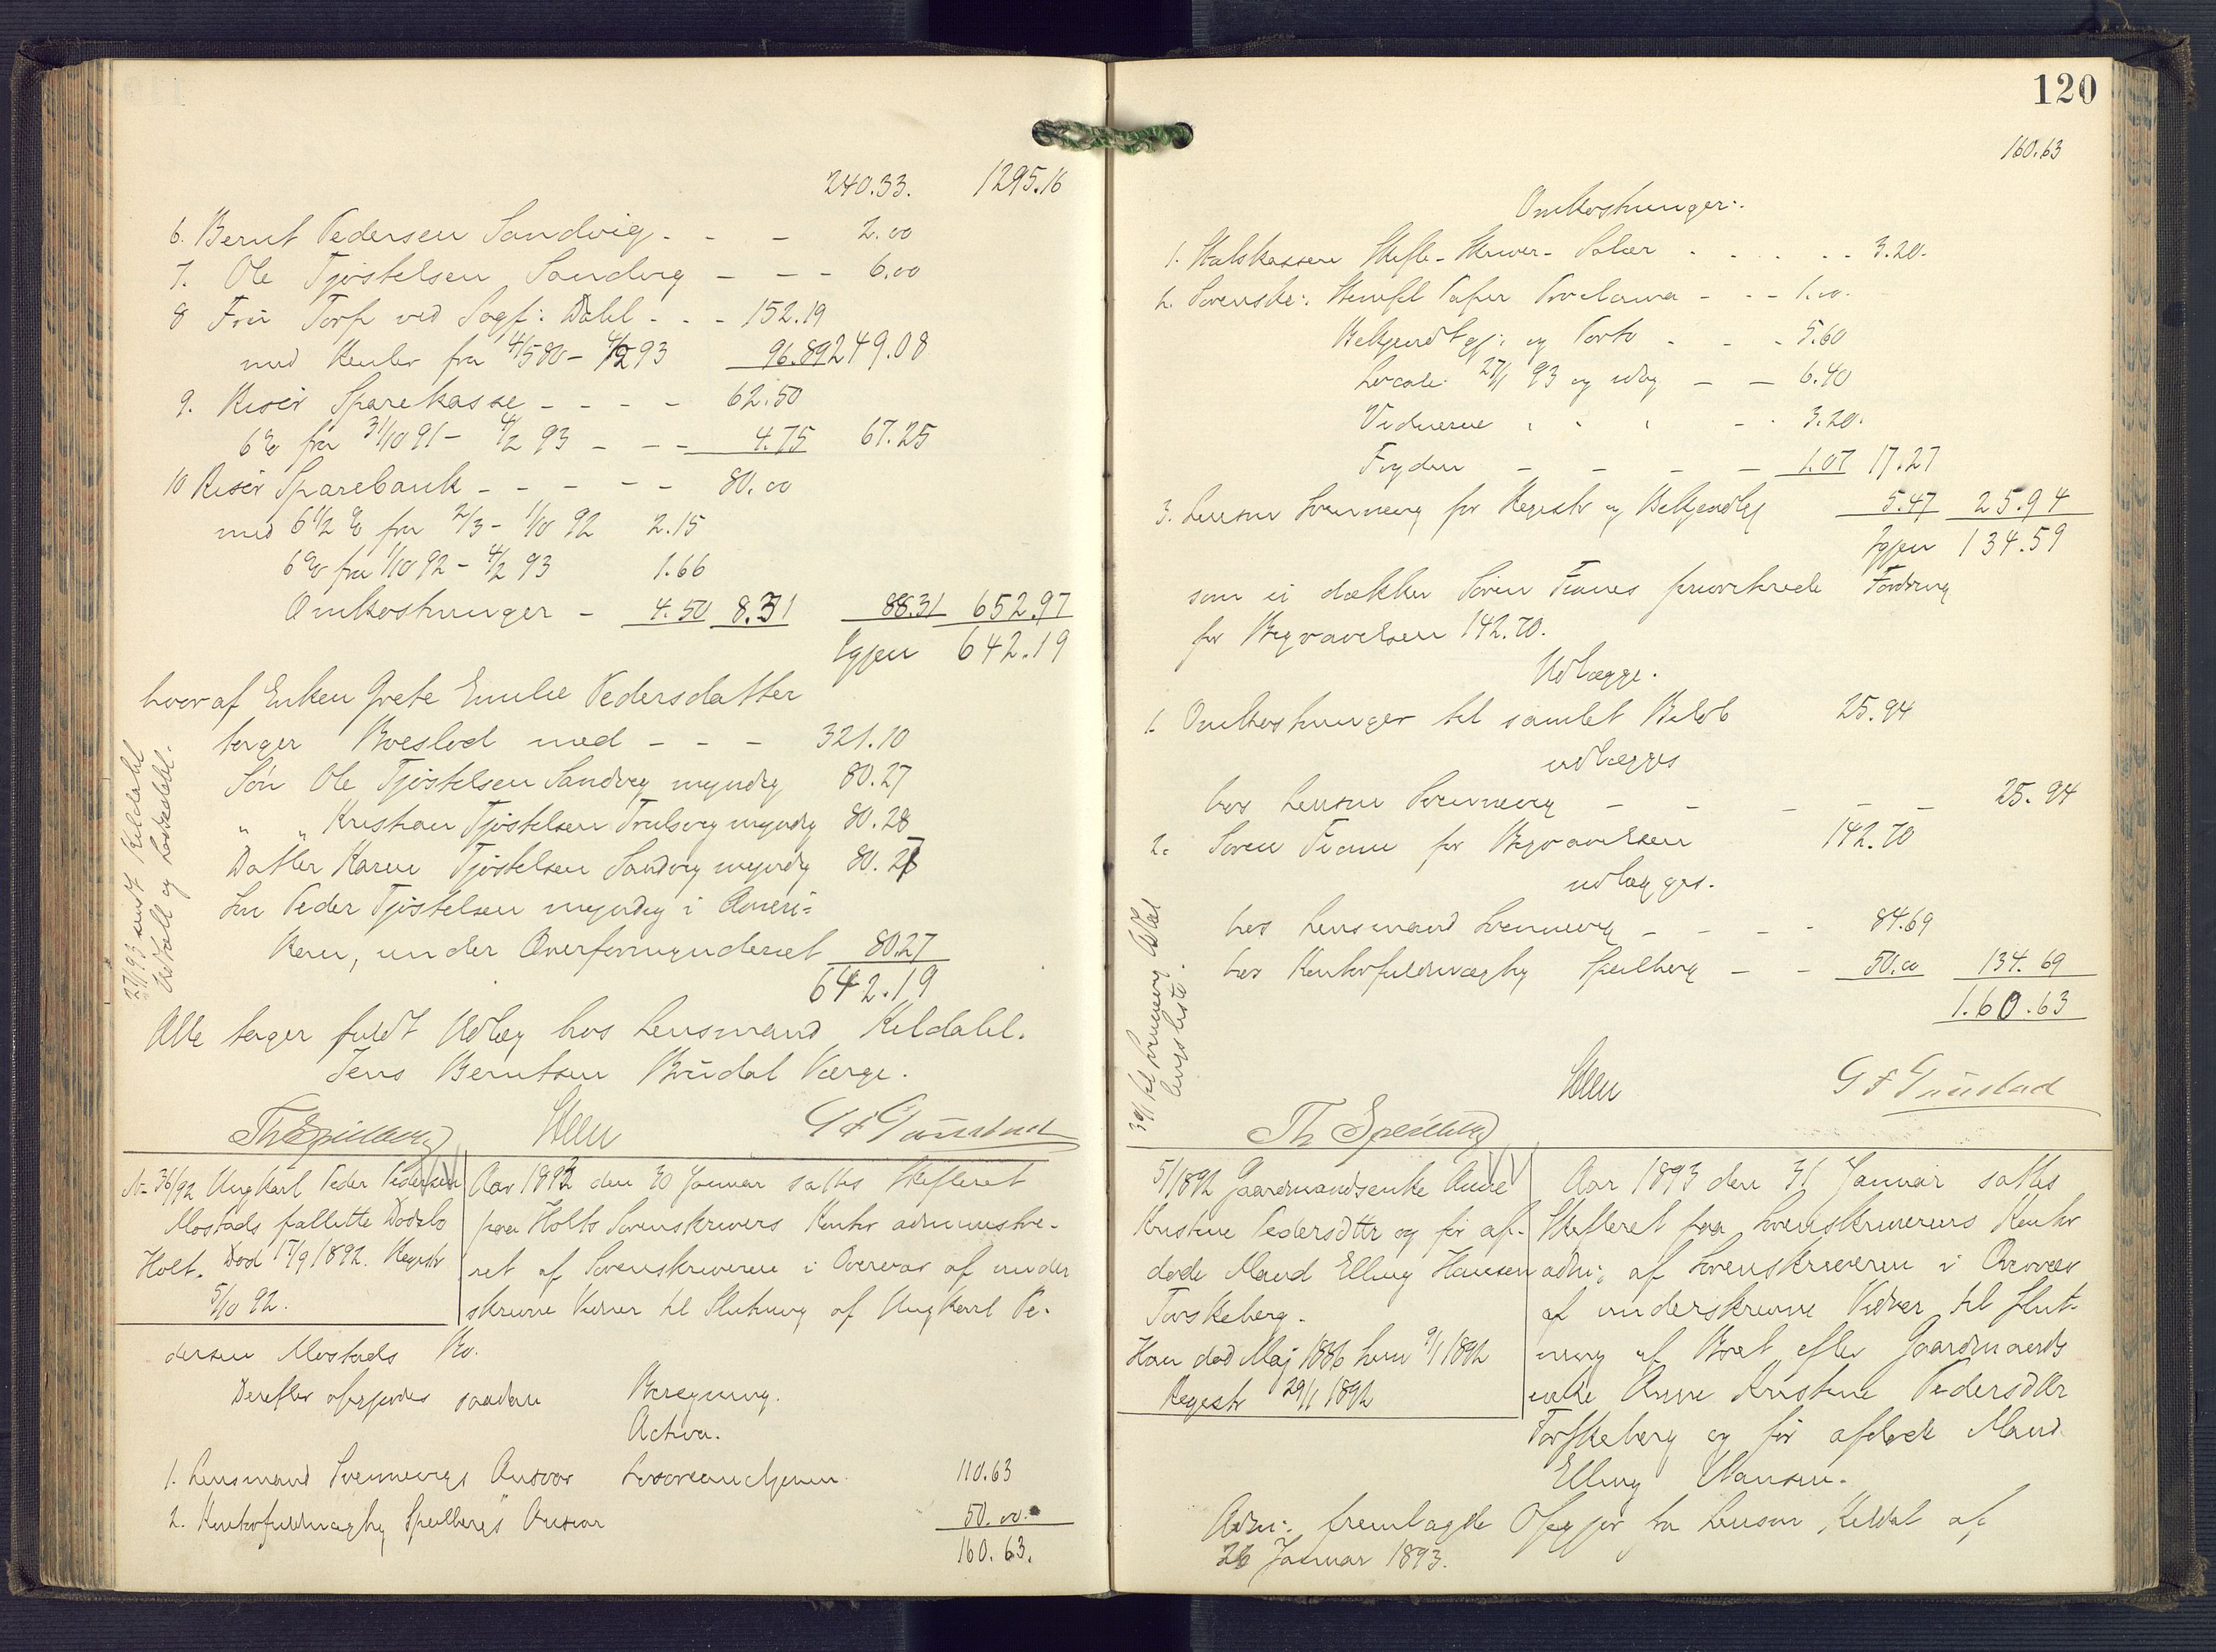 240.33. 1295.16
6. Bernt Pedersen Sandvig - - - 2.00
7. Ole Tjöstelsen Sandvig - - - 6.00
8 Fru Torp ved Sagf: Dahl - - - 152.19
med Renter fra 4/5 80 - 4/2 93 96.89 249.08
9. Risör Sparekasse - - - - 62.50
6 % fra 31/10 91 - 4/2 93 - - - 4.75 67.25
10 Risör Sparebank - - - - - 80.00
med 6 1/2 % fra 2/3 - 1/10 92 2.15
6 % fra 1/10 92 - 4/2 93 1.66
Omkostninger - 4.50 8.31 88.31 652.97
Igjen 642.19
hvoraf Enken Grete Emilie Pedersdatter
tager Boeslod med - - - 321.10
Sön Ole Tjöstelsen Sandvig myndig 80.27
" " Kristian Tjöstelsen Trulsvig myndig 80.28
Datter Karen Tjöstelsen Sandvig myndig 80.27
Sön Peder Tjöstelsen myndig i Ameri=
ken, under Overformynderiet 80.27
642.19
Alle tager fuldt Udlæg hos Lensmand Kildahl.
Jens Berntsen Brudal Værge.
27/1 93 sendt Kildahl
Udtall og Lodseddel.
Th Speilberg Steen G F Gunstad
No 36/92 Ungkarl Peder Pedersen
Mostads fallitte Dödsbo
Holt. Död 17/9 1892. Registr
5/10 92.
Aar 1893 den 30 Januar sattes Skifteret
paa Holts Sorenskrivers Kontor administre-
ret af Sorenskriveren i Overvær af under
skrevne Vidner til Slutning af Ungkarl Pe-
dersen Mostads Bo.
Derefter opgjordes saadan Beregning.
Activa.
1. Lensmand Svennevigs Ansvar Lösöreauctionen 110.63
2. Kontorfuldmægtig Speilbergs Ansvar 50.00
160.63.
120
160.63
Omkostninger:
1. Statskassen Skifte-Skriver-Salær - - - - - 3.20.
2. Sorenskr: Stemplet Papir Proclama - - - 1.00.
Bekjendtgj: og Porto - - - 5.60
Locale: 27/1 93 og idag - - 6.40
Vidnerne - - - 3.20.
Fogden - - - - 1.07 17.27
3. Lensm Svennevig for Registr og Bekjendtgj 5.47 25.94
Igjen 134.59
som ei dækker Sören Fianes prioriterede Fordring
for Begravelsen 142.70.
Udlægge.
1. Omkostninger til samlet Belöb 25.94
udlægges
hos Lensm Svennevig - - - - - 25.94
2. Sören Fiane for Begravelsen 142.70
udlægges.
hos Lensmand Svennevig - - - - 84.69
hos Kontorfuldmægtig Speilberg - - 50.00 134.69
1.60.63
30/1 til Svennevig Udtal
Steen G F Gunstad
Th Speilberg
5/1892 Gaardmandsenke Anne
Kristine Pedersdttr og för af-
döde Mand Elling Hansen
Torskeberg.
Han död Maj 1886 hun 9/1 1892
Registr 29/1 1892
Aar 1893 den 31 Januar sattes
Skifteret paa Sorenskriverens Kontor
adm: af Sorenskriveren i Overvær
af underskrevne Vidner til Slut-
ning af Boet efter Gaardmands
enke Anne Kristine Pedersdttr
Torskeberg og för afdöde Mand
Elling Hansen.
Adm: fremlagde Opgjör fra Lensm Kildal af
26 Januar 1893.